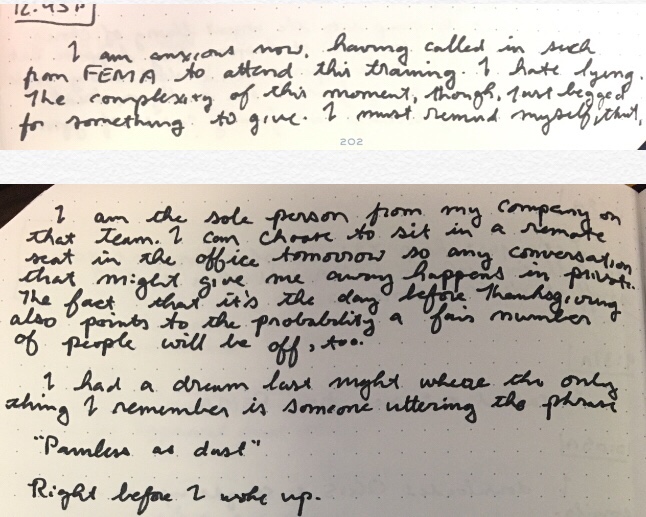 12:45P
I am anxious now, having called in sick
from FEMA to attend this training. I hate lying.
The complexity of this moment, though, just begged
for something to give. I must remind myself, that,
202
I am the sole person from my company on
that team. I can choose to sit in a remote
seat in the office tomorrow so any conversation
that might give me away happens in private.
The fact that it's the day before Thanksgiving
also points to the probability a fair number
of people will be off, too.
I had a dream last night where the only
thing I remember is someone uttering the phrase
"Painless as dust"
Right before I woke up.